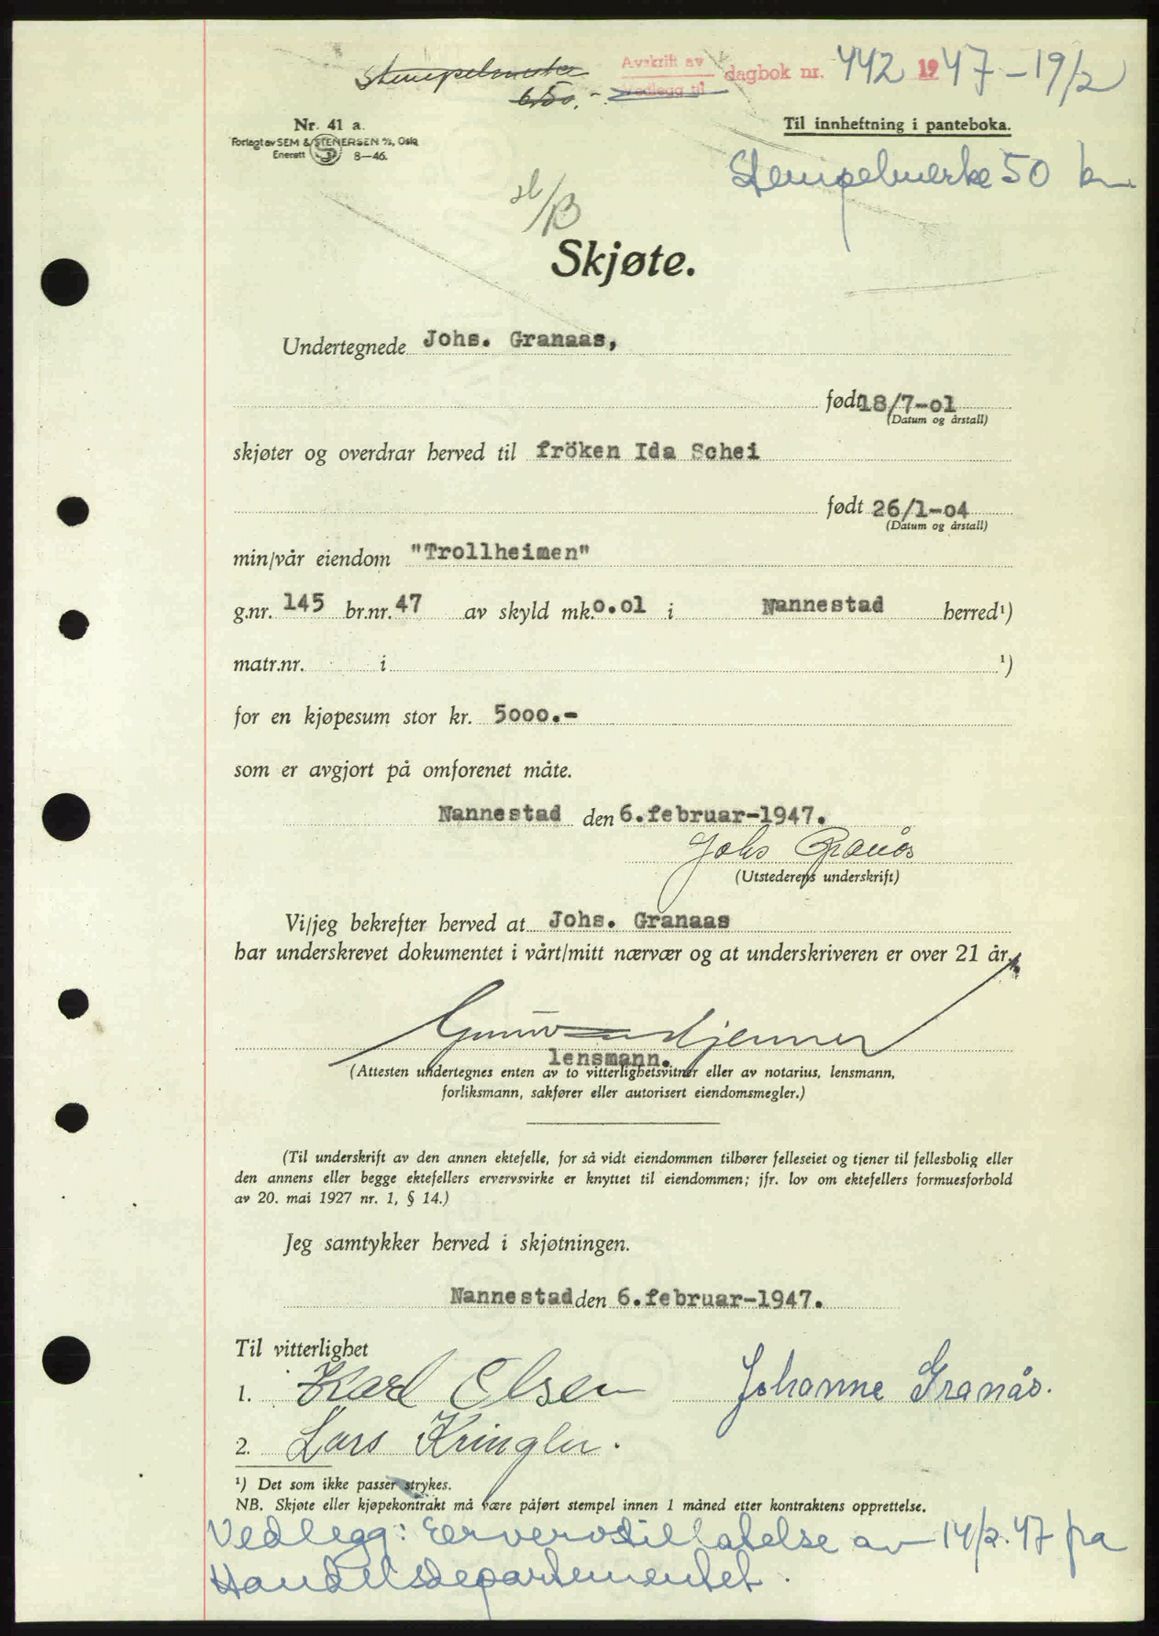 Stempelmerke
650.-
Avskrift av
Vedlegg til
dagbok nr. 442 1947-19/2
Nr. 41 a.
Forlagt av SEM & STENERSEN A/S, Oslo
Enerett 8—46.
Til innheftning i panteboka.
Stempelmerke 50 kr.
Skjøte.
Undertegnede Johs. Granaas,
født 18/7-01
(Datum og årstall)
skjøter og overdrar herved til fröken Ida Schei
født 26/1-04
(Datum og årstall)
min/vår eiendom "Trollheimen"
g.nr. 145 br.nr. 47 av skyld mk. 0.01 i Nannestad herred¹)
matr.nr. i ¹)
for en kjøpesum stor kr. 5000.-
som er avgjort på omforenet måte.
Nannestad den 6.februar-1947.
Johs Granås
(Utstederens underskrift)
Vi/jeg bekrefter herved at Johs. Granaas
har underskrevet dokumentet i vårt/mitt nærvær og at underskriveren er over 21 år.
lensmann.
(Attesten undertegnes enten av to vitterlighetsvitner eller av notarius, lensmann,
forliksmann, sakfører eller autorisert eiendomsmegler.)
(Til underskrift av den annen ektefelle, for så vidt eiendommen tilhører felleseiet og tjener til fellesbolig eller
den annens eller begge ektefellers ervervsvirke er knyttet til eiendommen; jfr. lov om ektefellers formuesforhold
av 20. mai 1927 nr. 1, § 14.)
Jeg samtykker herved i skjøtningen.
Nannestad den 6.februar-1947.
Til vitterlighet
1. Karl Olsen Johanne Granås.
2. Lars Kringler.
¹) Det som ikke passer strykes.
NB. Skjøte eller kjøpekontrakt må være påført stempel innen 1 måned etter kontraktens opprettelse.
Vedlegg: Ervervstillatelse av 14/2.47 fra
Handelsdepartementet.